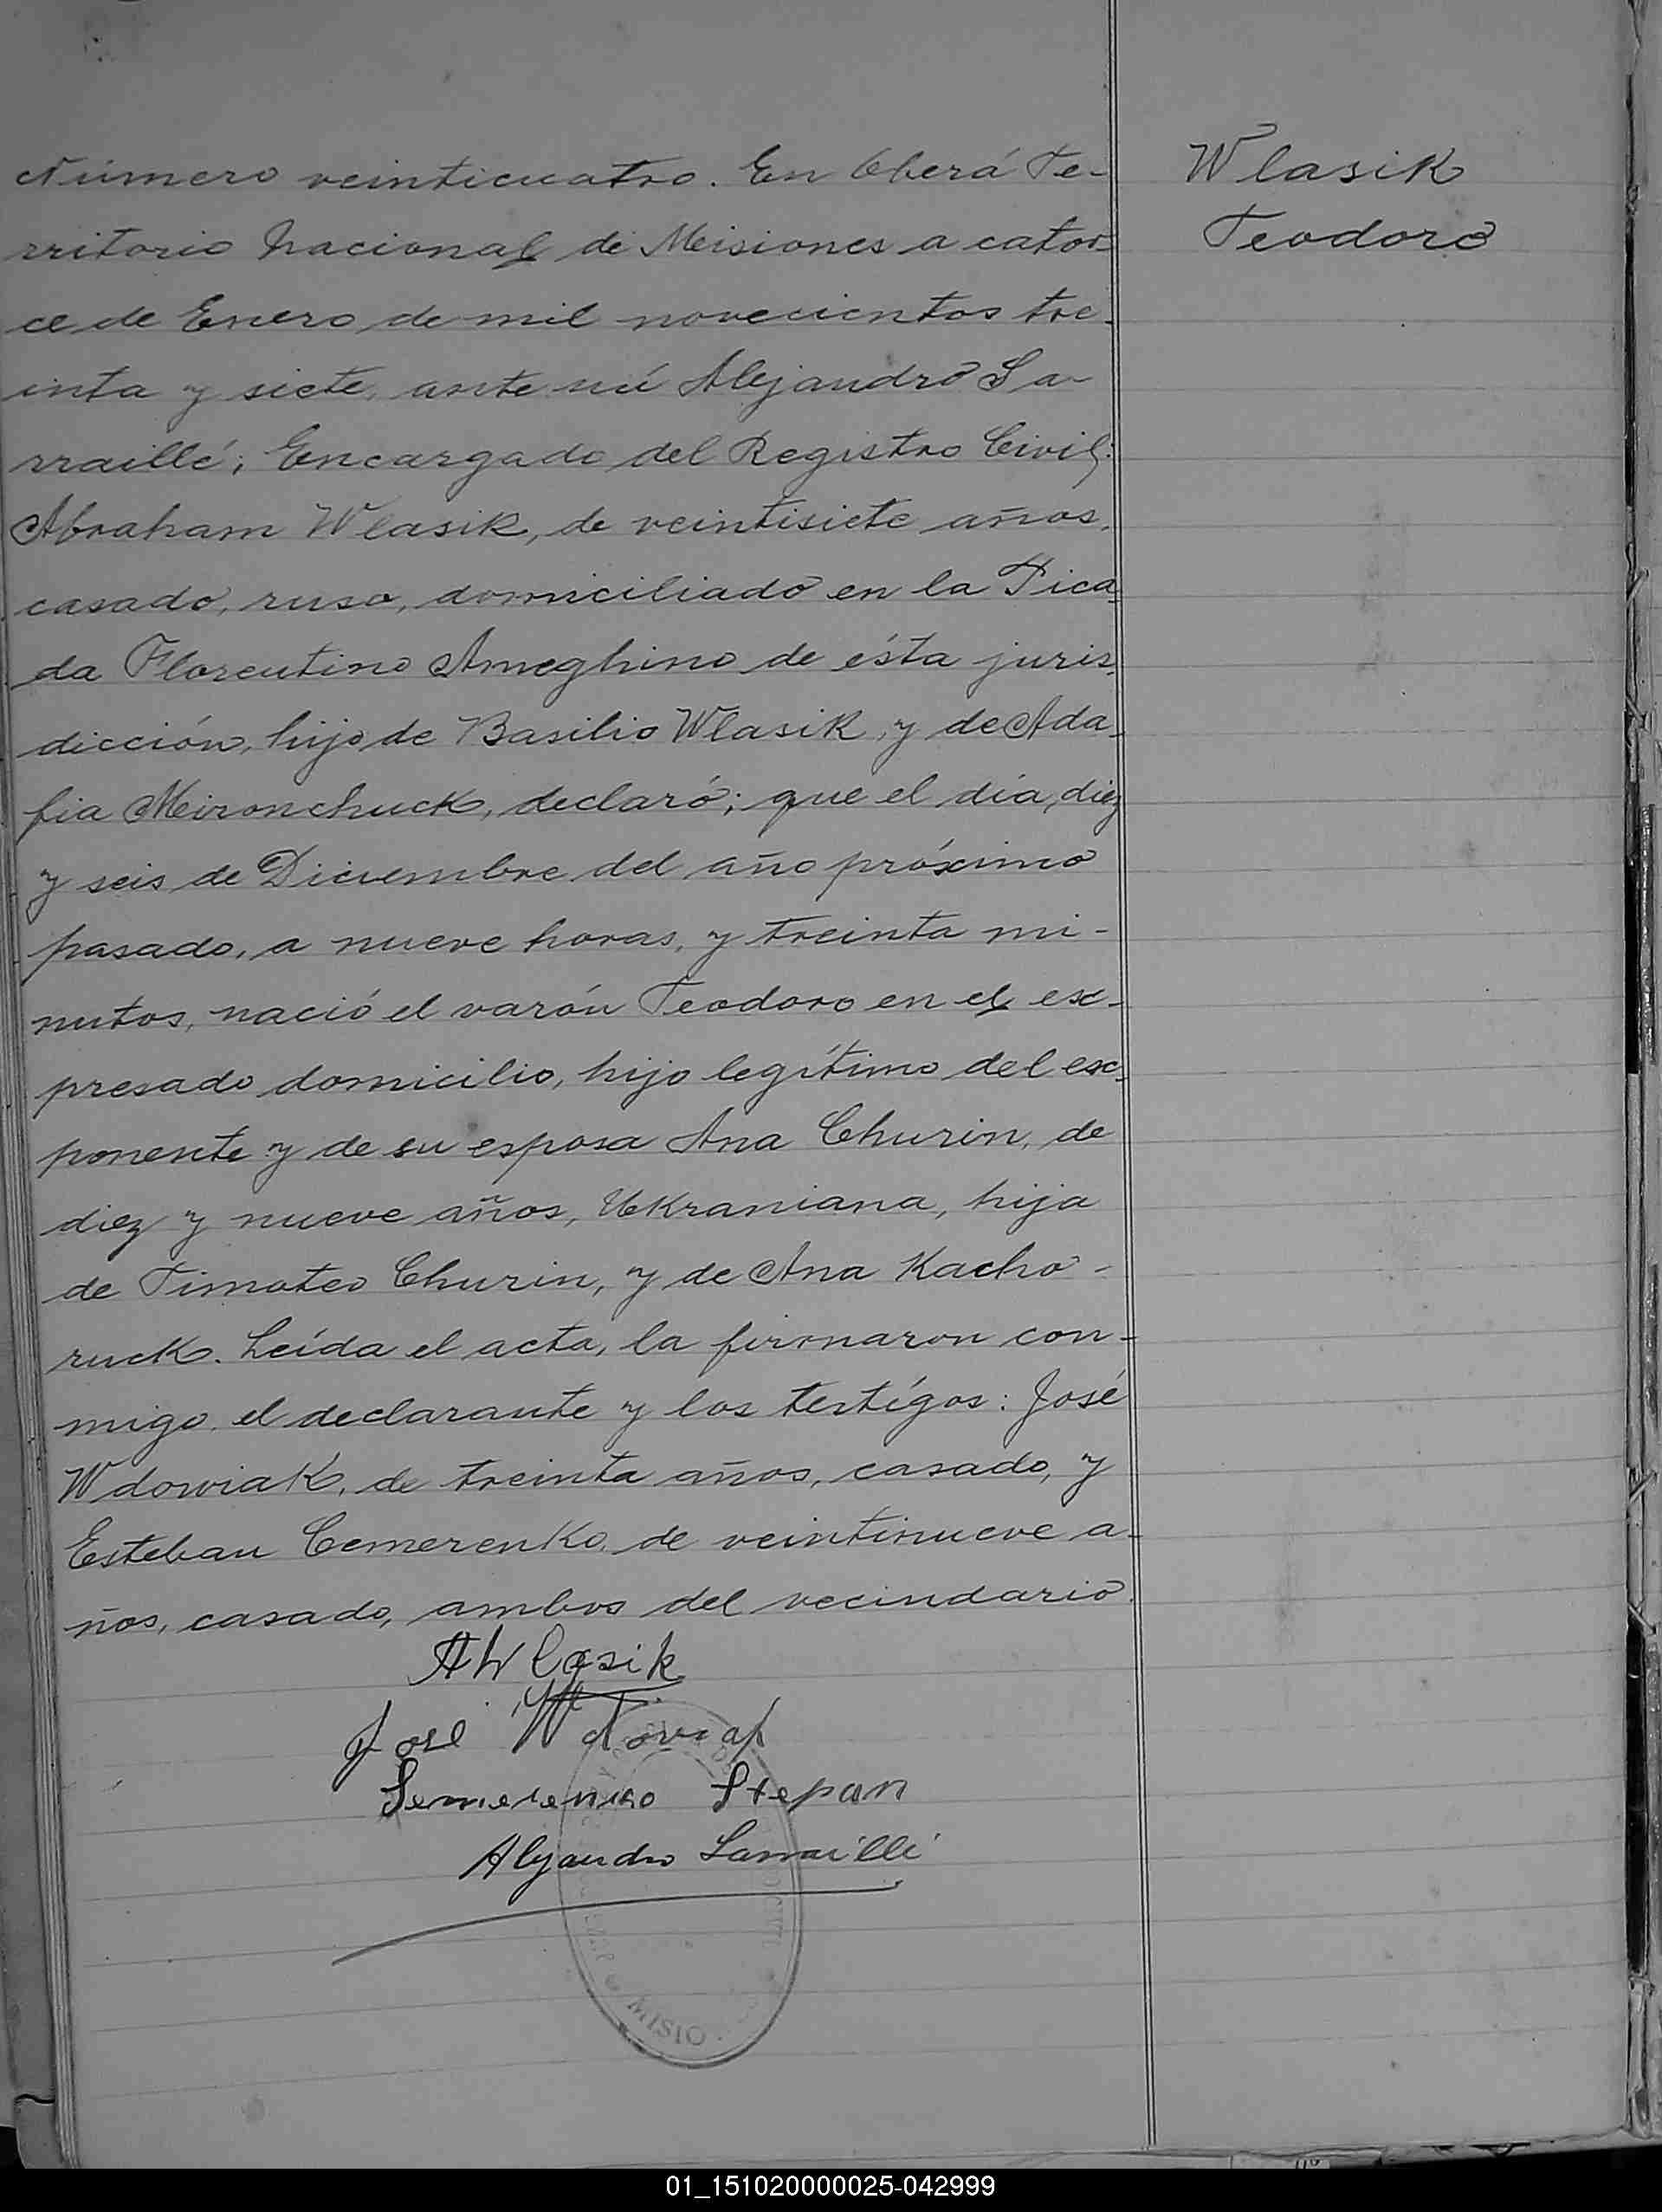 Wlasik
Teodoro
Número veinticuatro. En Oberá Te-
rritorio Nacional de Meisiones a cator-
ce de Enero de mil novecientos tre-
inta y siete, ante mí Alejandro La-
rraillé, Encargado del Registro Civil:
Abraham Wlasik, de veintisiete años,
casado, ruso, domiciliado en la Pica-
da Florentino Ameghino de ésta juris-
dicción, hijo de Basilio Wlasik, y de Ada-
fia Meironchuck, declaró; que el día, diez
y seis de Diciembre del año próximo
pasado, a nueve horas, y treinta mi-
nutos, nació el varón Teodoro en el ex-
presado domicilio, hijo legítimo del ex-
ponente y de su esposa Ana Churin, de
diez y nueve años, Ukraniana, hija
de Timoteo Churin, y de Ana Kacho-
ruck. Leída el acta, la firmaron con-
migo, el declarante y los testígos: José
Wdowiak, de treinta años, casado, y
Esteban Cemerenko, de veintinueve a-
ños, casado, ambos del vecindario.
AWlasik
José Wdowiak
Stepan
Alejandro Larraillé
MISIO
01_151020000025-042999